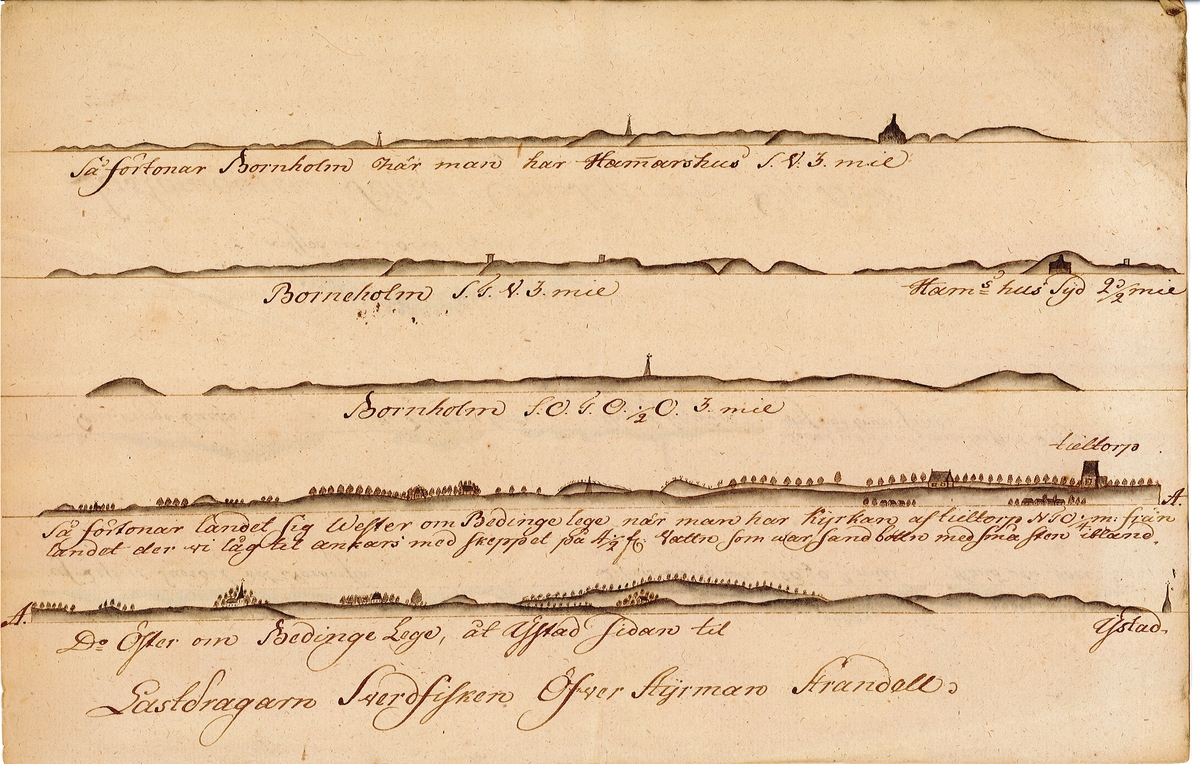 Så förtonar Bornholm när man har Hamarshus S. V. 3. mil
Borneholm S. T. V. 3. mil
Hamshus Syd 2½ mil
Bornholm S. O. T. O. ½ O. 3. mil
lieltorp
A.
Så förtonar landet sig Wester om Bedinge lege när man har Kyrkan af lieltorp NTO ¼ m: från
landet der wi låg til ankars med skeppet på 4½ f: Vattn som war sand bottn med små sten ibland.
A.
Do Öster om Bedinge Lege, åt Ystad sidan til
Ystad.
Lastdragarn Swerdfisken Öfwer Styrman Strandell